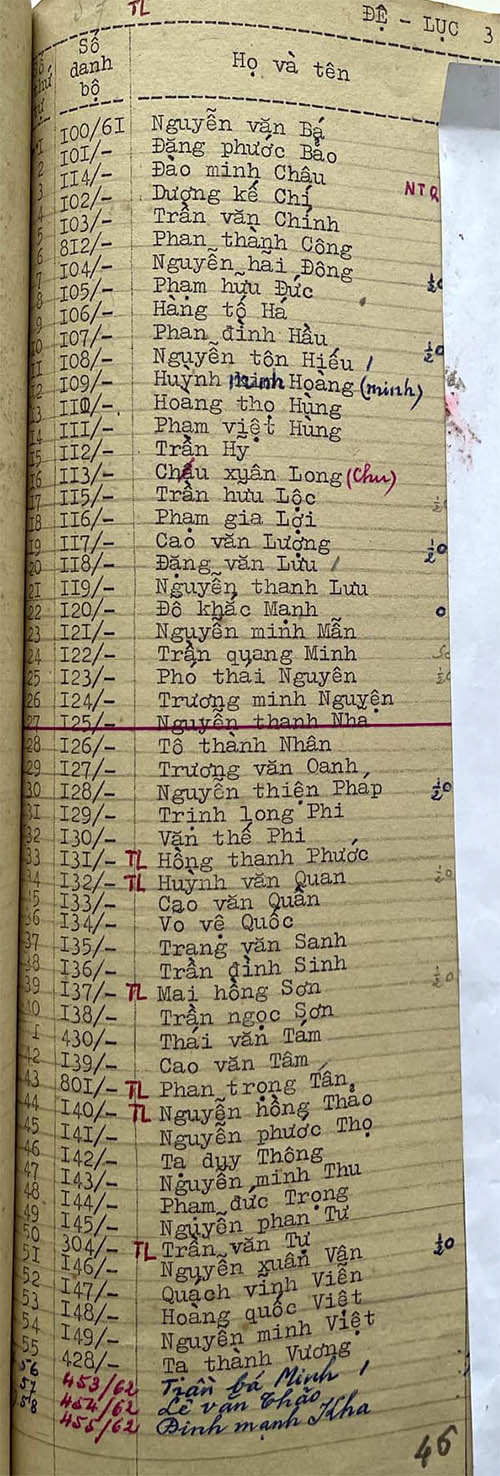 57 TL ĐỆ - LỤC 3
Số thứ tự Số danh bộ Họ và tên
1 I00/6I Nguyễn văn Bá
2 I0I/- Đặng phước Bảo
3 II4/- Đào minh Châu
4 I02/- Dương kế Chí NTQ
5 I03/- Trần văn Chính
6 8I2/- Phan thành Công
7 I04/- Nguyễn hãi Đông
8 I05/- Phạm hựu Đức ½0
9 I06/- Hàng tố Há
10 I07/- Phan đình Hầu
11 I08/- Nguyễn tôn Hiếu / ½0
12 I09/- Huỳnh minh Hoàng (minh)
13 II0/- Hoàng thọ Hùng
14 III/- Phạm việt Hùng
15 II2/- Trần Hỹ
16 II3/- Châu xuân Long (Chu)
17 II5/- Trần hữu Lộc ½0
18 II6/- Phạm gia Lợi
19 II7/- Cao văn Lượng ½0
20 II8/- Đặng văn Lưu /
2I II9/- Nguyễn thanh Lưu
22 I20/- Đỗ khắc Mạnh 0
23 I2I/- Nguyễn minh Mẫn
24 I22/- Trần quang Minh
25 I23/- Phó thái Nguyên ½0
26 I24/- Trương minh Nguyện
27 I25/- Nguyễn thanh Nhã
28 I26/- Tô thành Nhân
29 I27/- Trương văn Oanh
30 I28/- Nguyễn thiện Pháp ½0
3I I29/- Trịnh long Phi
32 I30/- Văn thế Phi
33 I3I/- TL Hồng thanh Phước
34 I32/- TL Huỳnh văn Quan ½0
35 I33/- Cao văn Quân
36 I34/- Vo vệ Quốc
37 I35/- Trang văn Sanh
38 I36/- Trần đình Sinh
39 I37/- TL Mai hồng Sơn ½0
40 I38/- Trần ngọc Sơn
4I 430/- Thái văn Tám
42 I39/- Cao văn Tâm
43 80I/- TL Phan trọng Tấn
44 I40/- TL Nguyễn hồng Thảo
45 I4I/- Nguyễn phước Thọ
46 I42/- Tạ duy Thông
47 I43/- Nguyễn minh Thu
48 I44/- Phạm đức Trọng
49 I45/- Nguyễn phan Tư
50 304/- TL Trần văn Tự
5I I46/- Nguyễn xuân Vân ½0
52 I47/- Quách vĩnh Viễn
53 I48/- Hoàng quốc Việt
54 I49/- Nguyễn minh Việt
55 428/- Tạ thành Vương
56 453/62 Trần bá Minh /
57 454/62 Lê văn Thảo
58 455/62 Đinh mạnh Kha
46